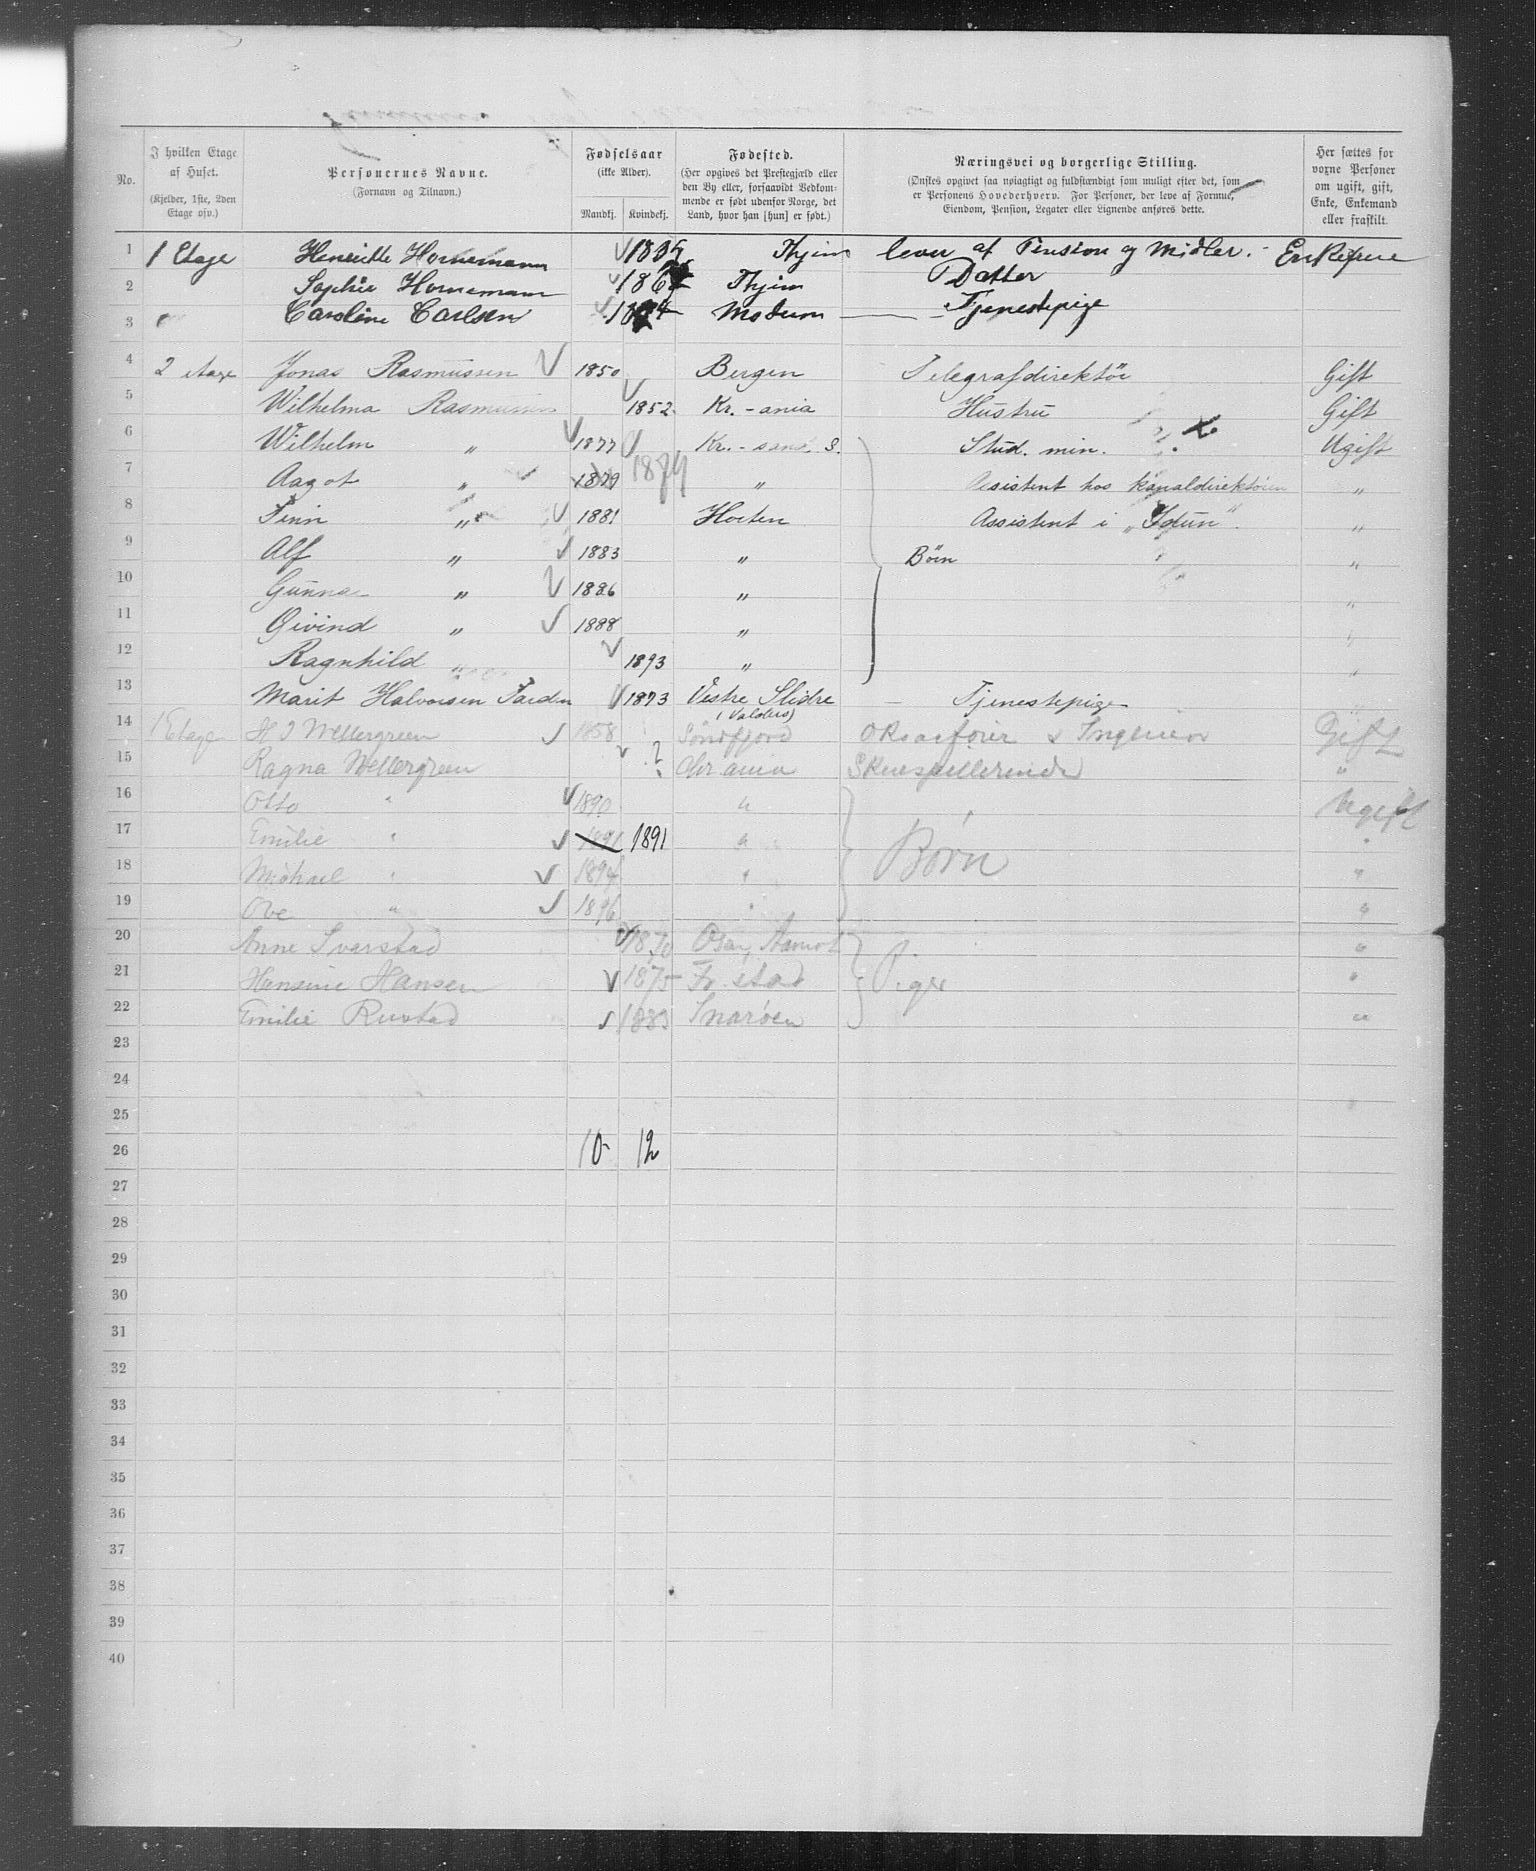 No. | I hvilken Etage af Huset. (Kjelder, 1ste, 2den Etage osv.) | Personernes Navne. (Fornavn og Tilnavn.) | Fødselsaar (ikke Alder). Mandkj. Kvindekj. | Fødested. (Her opgives det Prestegjæld eller den By eller, forsaavidt Vedkommende er født udenfor Norge, det Land, hvor han [hun] er født.) | Næringsvei og borgerlige Stilling. (Ønskes opgivet saa nøiagtigt og fuldstændigt som muligt efter det, som er Personens Hovederhverv. For Personer, der leve af Formue, Eiendom, Pension, Legater eller Lignende anføres dette.) | Her sættes for voxne Personer om ugift, gift, Enke, Enkemand eller fraskilt.
1 1 Etage Henriette Hornemann Thjem lever af Pension og Midler. Enkefrue
2 Sophie Hornemann Thjem Datter
3 Caroline Carlsen Modum Tjenestepige
4 2 etage Jonas Rasmussen 1850 Bergen Telegrafdirektör Gift
5 Wilhelma Rasmussen 1852 Kr.-ania Hustru Gift
6 Wilhelm " 1877 Kr.-sand. S. Stud. min. Ugift
7 Aagot " 1879 1879 " Assistent hos kanaldirektören "
8 Finn " 1881 Horten Assistent i "Idun". "
9 Alf " 1883 " Börn "
10 Gunnar " 1886 " "
11 Öivind " 1888 " "
12 Ragnhild " 1893 " "
13 Marit Halvorsen 1873 Vestre Slidre (Valders) Tjenestepige "
14 1 Etage H J Wettergreen 1858 Söndfjord & Ingeniør Gift
15 Ragna Wettergreen ? Chr ania Skuespillerinde "
16 Otto " 1890 " Ugift
17 Emilie " 1891 1891 " Børn "
18 Michael " 1894 " "
19 Ove " 1896 " "
20 Anne Svarstad 1870 Aamot "
21 Hansine Hansen 1875 Fr. stad Piger "
22 Emilie Rustad 1883 Snarøen "
23
24
25
26 10 12
27
28
29
30
31
32
33
34
35
36
37
38
39
40